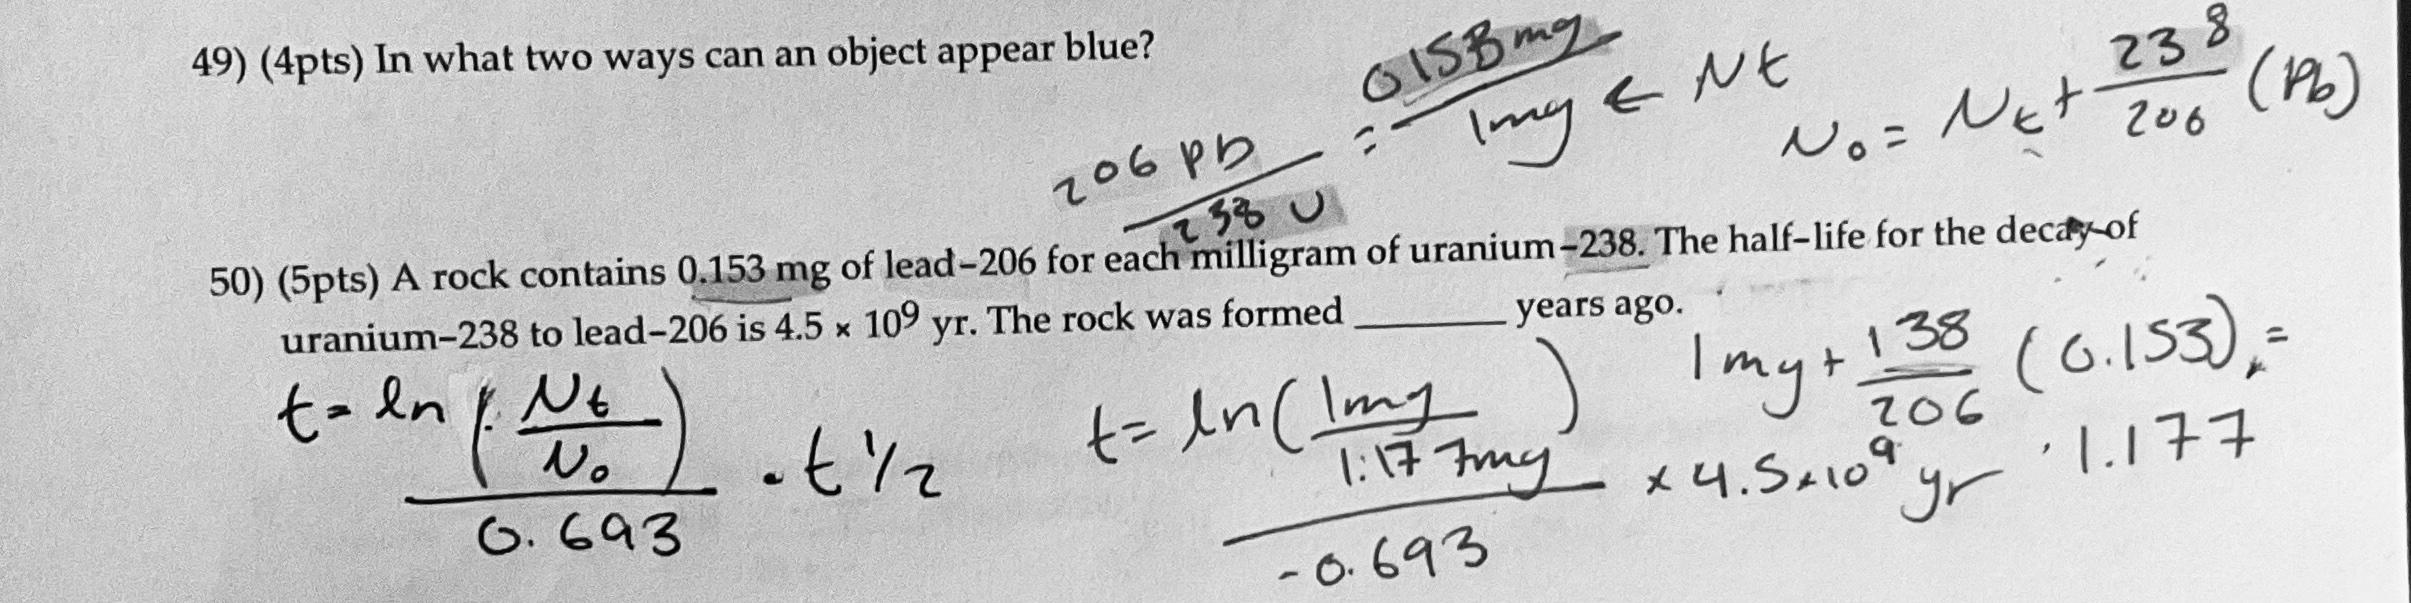 49) (4pts) In what two ways can an object appear blue?
206 Pb / 238 U = 0.153 mg / 1mg ← Nt
N₀ = Nt + 238/206 (Pb)
50) (5pts) A rock contains 0.153 mg of lead-206 for each milligram of uranium-238. The half-life for the decay of
uranium-238 to lead-206 is 4.5 × 10⁹ yr. The rock was formed ________ years ago.
1 mg + 138/206 (0.153) =
1.177
t = ln (Nt/N₀) / 0.693 · t ½
t = ln (1mg / 1.177mg) / -0.693 × 4.5×10⁹ yr